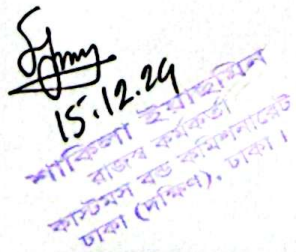 15.12.24
শাকিলা ইয়াছমিন
রাজস্ব কর্মকর্তা
কাস্টমস বন্ড কমিশনারেট
ঢাকা (দক্ষিণ), ঢাকা।